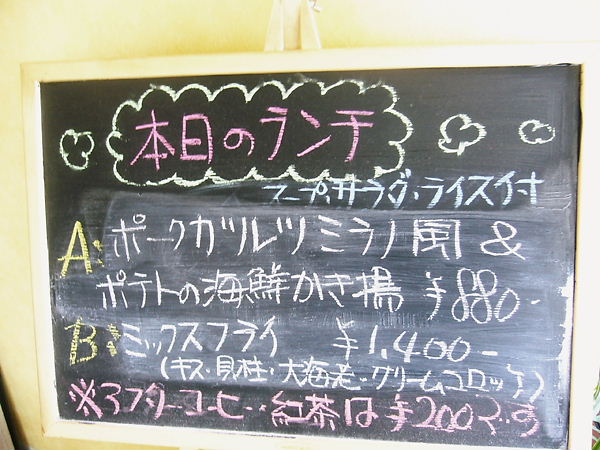 本日のランチ
スープ・サラダ・ライス付
A: ポークカツレツミラノ風 &
ポテトの海鮮かき揚 ¥880-
B: ミックスフライ ¥1,400-
(キス・貝柱・大海老・クリームコロッケ)
※アフターコーヒー・紅茶は¥200です